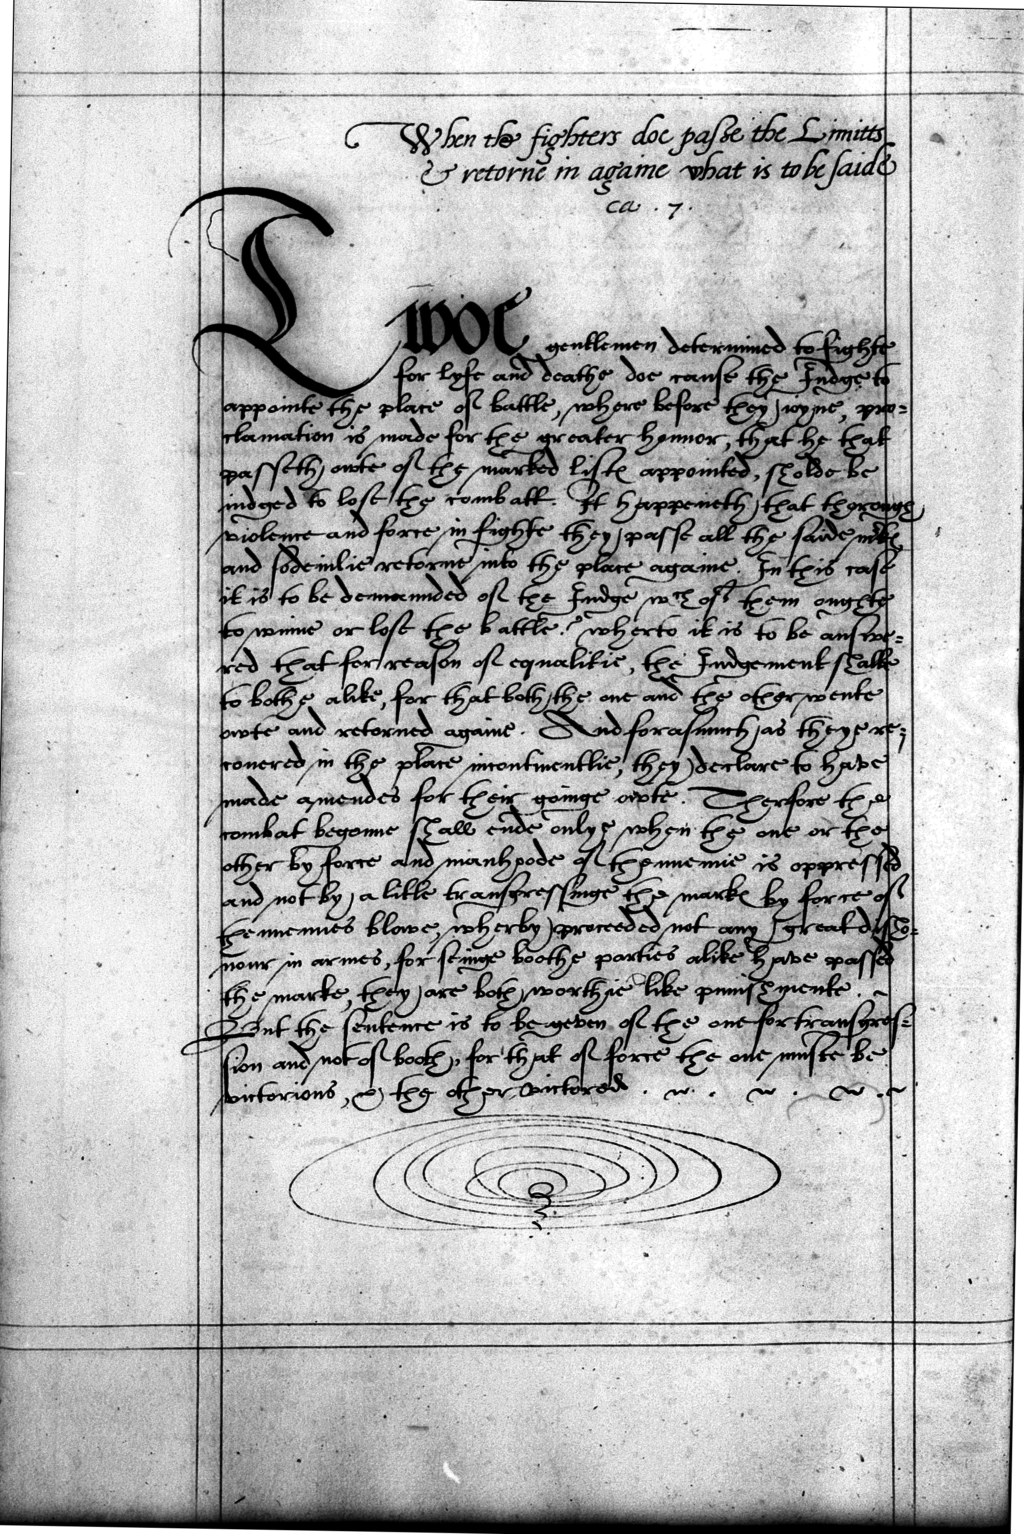 When the fighters doe passe the Limitts
& retorne in againe what is to be saide
ca . 7 .
Twoe gentlemen determined to fighte
for lyfe and deathe doe cause the Iudge to
appointe the place of battle, where before they ioyne, pro=
clamation is made for the greater honnor, that he that
passeth owte of the marked listes appointed, sholde be
iudged to lose the combatt. It happeneth that thorough
violence and force in fighte they passe all the saide
and sodeinlie retorne into the place againe. In this case
it is to be demaunded of the Iudge wch of them oughte
to winne or lose the battle? wherto it is to be answe=
red that for reason of equalitie, the Iudgement shalbe
to bothe alike, for that both the one and the other wente
owte and retorned againe. And forasmuch as theye re=
couered in the place incontinentlie, they declare to have
made amendes for their goinge owte. Therfore the
combat begonne shall ende onlye when the one or the
other by force and manhoode of thennemie is oppressed
and not by a litle transgressinge the markes by force of
thennemies blowe, wherby proceeded not any great disho=
nour in armes, for seinge boothe parties alike have passed
the marke, they are both worthie like punishmente.
But the sentence is to be geven of the one for transgres=
sion and not of booth, for that of force the one muste be
victorious, & the other victored.